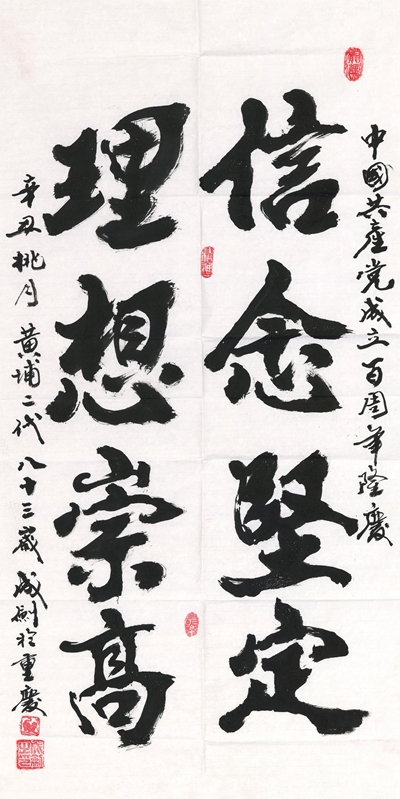 中國共產党成立百周年隆慶
信念堅定
理想崇高
辛丑桃月 黄埔二代 八十三歲 成剑於重慶